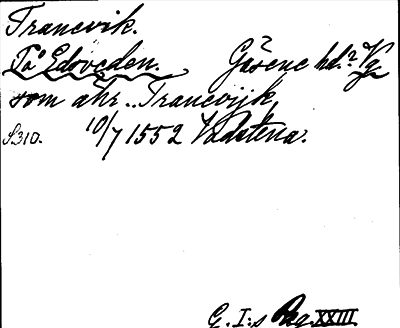 Tranevik.
På Edsveden. Gäsene hd? Vg.
som ähr.. Tranevijk,
S.310. 10/7 1552 Vadstena.
G. I:s Reg. XXIII